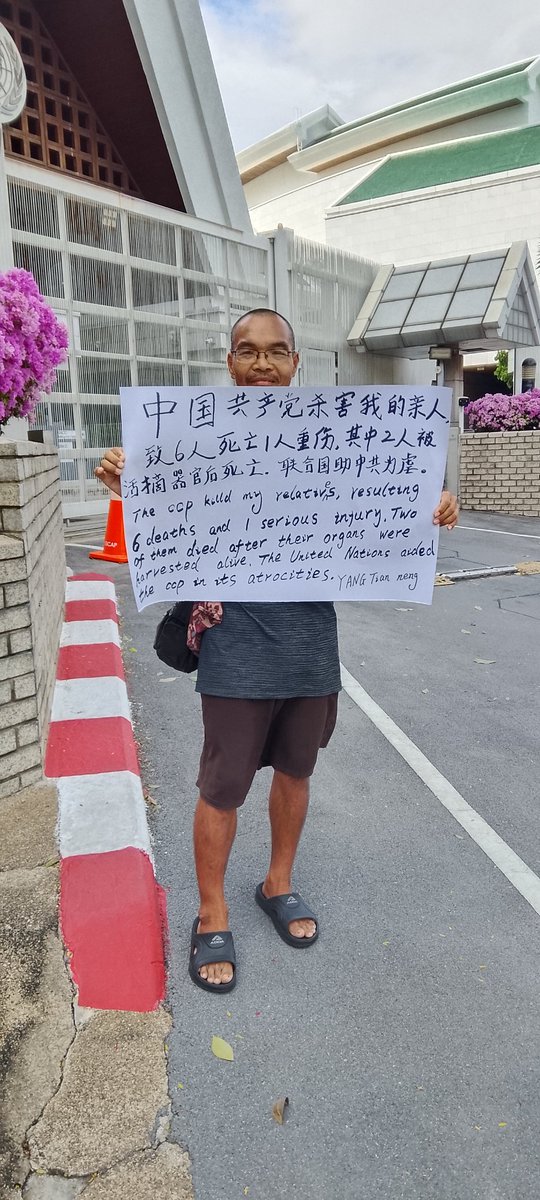 中国共产党杀害我的亲人,
致6人死亡1人重伤,其中2人被
活摘器官后死亡.联合国助中共为虐。
The ccp killd my relatives, resulting
6 deaths and 1 serious injury. Two
of them died after their organs were
harvested alive. The United Nations aided
the ccp in its atrocities. YANG Tian neng